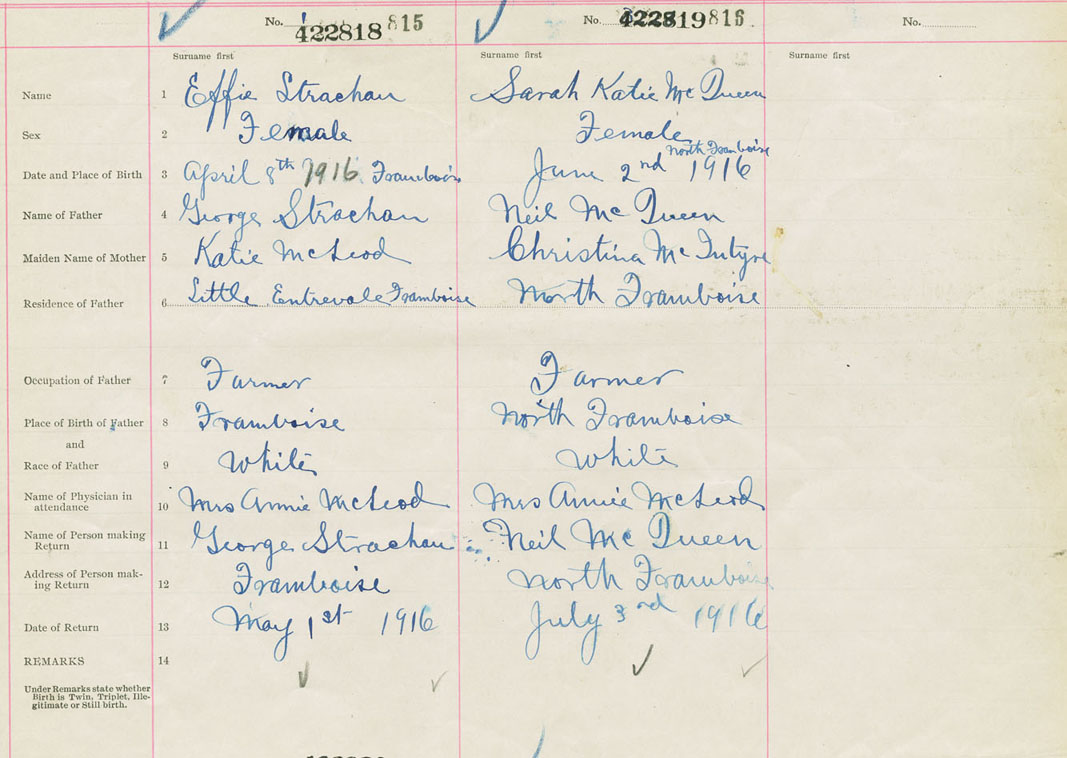 No. 422818 815
No. 422819 816
No.
Surname first
Surname first
Surname first
Name 1 Effie Strachan Sarah Katie Mc Queen
Sex 2 Female Female
North Framboise
Date and Place of Birth 3 April 8th 1916 Framboise June 2nd 1916
Name of Father 4 George Strachan Neil Mc Queen
Maiden Name of Mother 5 Katie McLeod Christina Mc Intyre
Residence of Father 6 Little Entrevale Framboise North Framboise
Occupation of Father 7 Farmer Farmer
Place of Birth of Father 8 Framboise North Framboise
and
Race of Father 9 White White
Name of Physician in
attendance 10 Mrs Annie McLeod Mrs Annie McLeod
Name of Person making
Return 11 George Strachan Neil Mc Queen
Address of Person mak-
ing Return 12 Framboise North Framboise
Date of Return 13 May 1st 1916 July 3rd 1916
REMARKS 14
Under Remarks state whether
Birth is Twin, Triplet, Ille-
gitimate or Still birth.